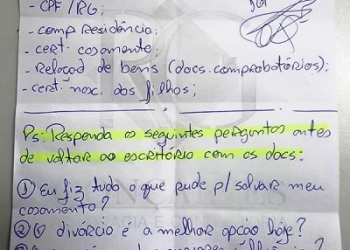 - CPF/RG;
- comp Residência;
- cert. casamento;
- Relação de bens (docs. comprobatórios);
- cert. nasc. dos filhos;
Ps: Responda as seguintes perguntas antes
de voltar ao escritório com os docs:
① Eu fiz tudo o que pude p/ salvar meu
casamento?
② O divórcio é a melhor opção hoje?